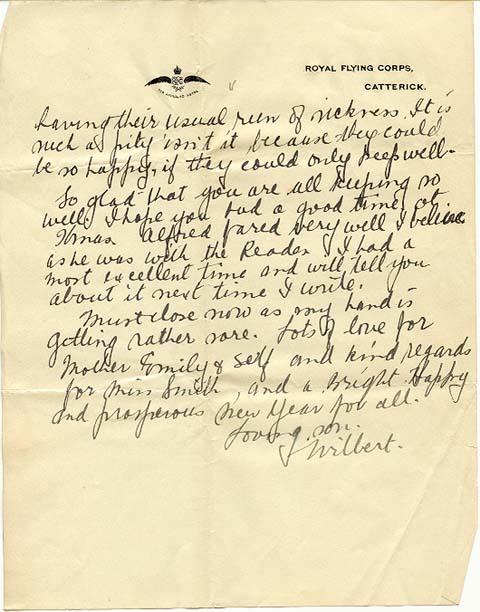 ROYAL FLYING CORPS,
CATTERICK.
having their usual run of sickness. It is
such a pity isn't it because they could
be so happy, if they could only keep well.
So glad that you are all keeping so
well. I hope you had a good time at
Xmas. Alfred fared very well I believe
as he was with the Reader. I had a
most excellent time and will tell you
about it next time I write.
Must close now as my hand is
getting rather sore. Lots of love for
Mother Emily & Self and kind regards
for Miss Smith, and a Bright Happy
and prosperous New Year for all.
Loving son.
Wilbert.